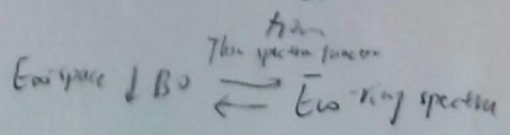 Thom spectra functor
E∞ space ↓ BO ⇄ E∞-ring spectra